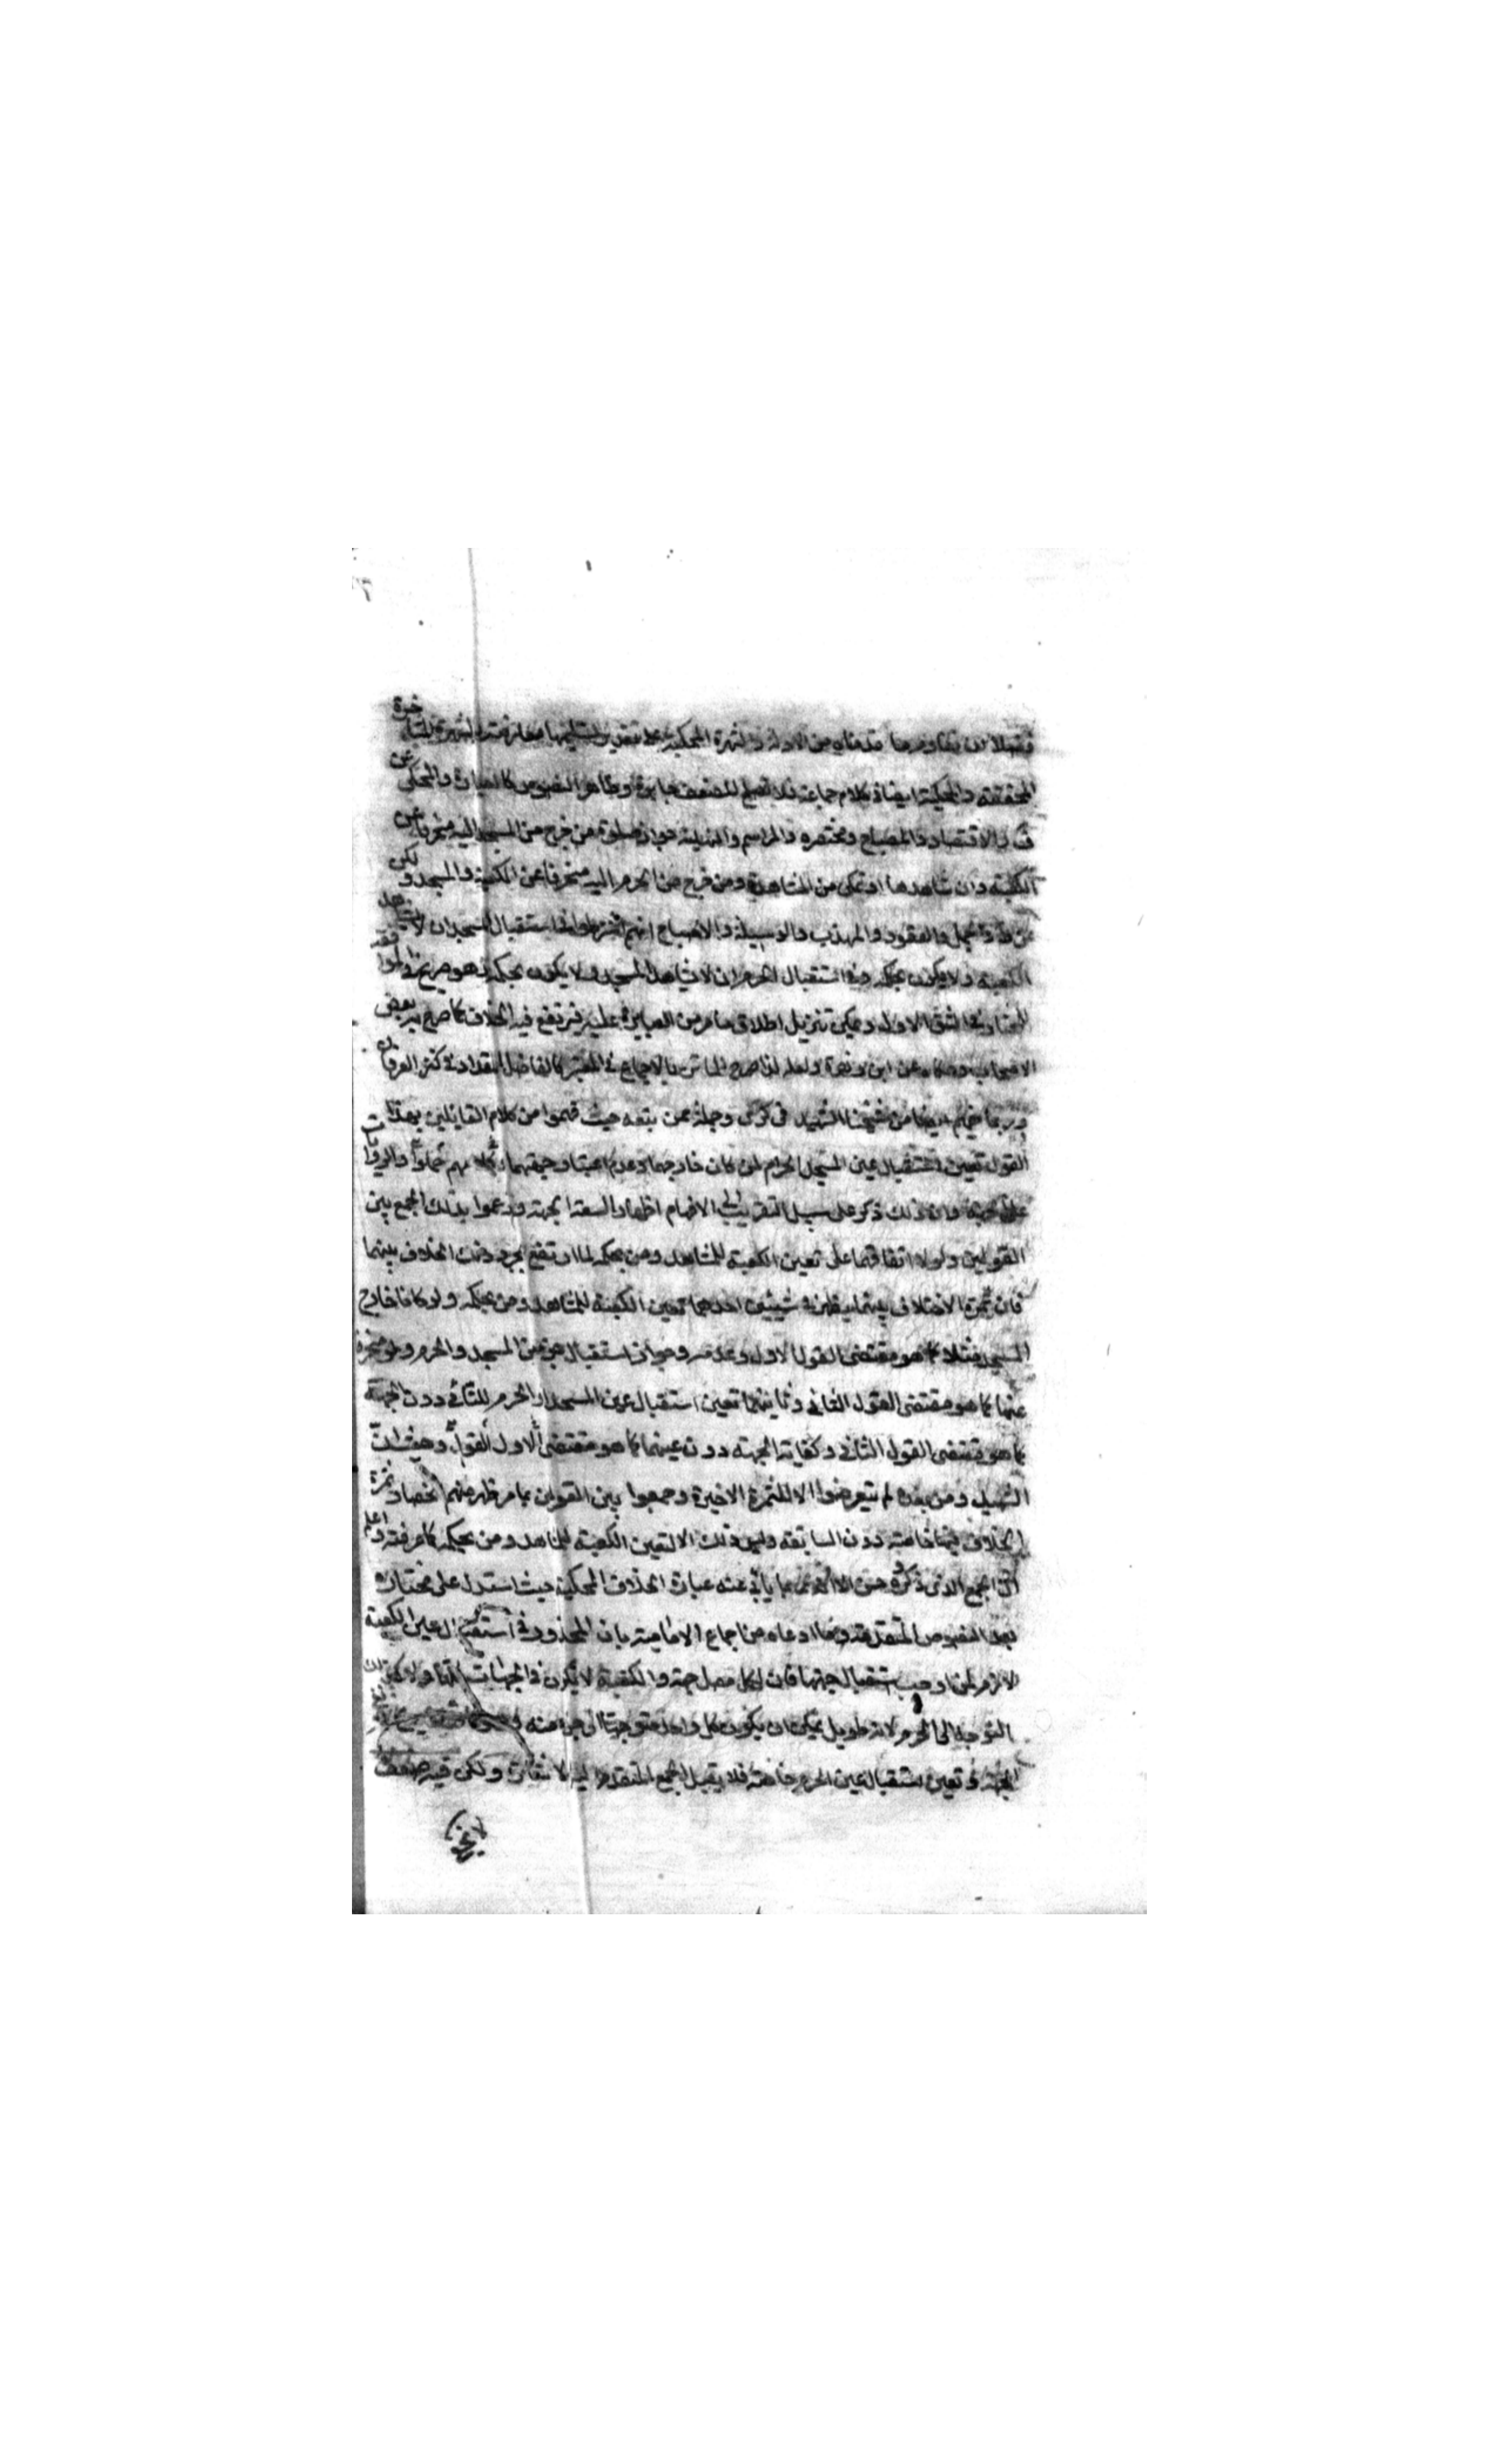 فضلا ان يقاوم ما قدمناه من الادلة والشهرة المحكية على تقدير تسليمها معارضة بالشهرة المتأخرة
المحققة والمحكية ايضا في كلام جماعة فلا تصلح للضعف جابرة وظاهر النصوص كالعبارة والمحكي عن
ف والاقتصاد والمصباح ومختصره والمراسم والنهاية جواز صلوة من خرج من المسجد اليه منحرفا عن
الكعبة وان شاهدها او تمكن من المشاهدة ومن خرج من الحرم اليه منحرفا عن الكعبة والمسجد ولكن
عن والجمل والعقود والمهذب والوسيلة والاصباح انهم اشترطوا في استقبال المسجد ان لا يشاهد
الكعبة ولا يكون بحكمه وفي استقبال الحرم ان لا يشاهد المسجد ولا يكون بحكمه وهو صريح في
المختار في الشق الاول ويمكن تنزيل اطلاق ما مر من العبائر عليه فيرتفع فيه الخلاف كما صرح به بعض
الاصحاب وحكاه عن ابن زهرة ولعله لذا صرح الماتن بالاجماع في المعتبر كالفاضل المقداد في كنز العرفان
وربما يفهم ايضا من شيخنا الشهيد في كرى وجملة ممن تبعه حيث فهموا من كلام القائلين بهذا
القول تعين استقبال عين المسجد الحرام لمن كان خارجهما وعدم اعتبار جهتهما كلامهم حملوا والروايات
على الجهة وان ذلك ذكر على سبيل التقريب الى الافهام اظهارا لسعة الجهة وزعموا بذلك الجمع بين
القولين ولولا اتفاقهما على تعين الكعبة للمشاهد ومن بحكمه لما ارتفع بمجرد ذلك الخلاف بينهما
فان ثمرة الاختلاف بينهما يظهر في شيئين احدهما تعين الكعبة للمشاهد ومن بحكمه ولو كانا خارج
المسجد مثلا كما هو مقتضى القول الاول وعدمه وجواز استقبال جزء من المسجد والحرم ولو منحرفة
عنها كما هو مقتضى القول الثاني وثانيتهما تعين استقبال عين المسجد او الحرم للنائي دون الجهة
كما هو مقتضى القول الثاني وكفاية الجهة دون عينهما كما هو مقتضى القول الاول وحيث ان
الشهيد ومن بعده لم يتعرضوا الا للثمرة الاخيرة وجمعوا بين القولين بما مر ظهر منهم انحصار ثمرة
الخلاف فيها خاصة دون السابقة وليس ذلك الا لتعين الكعبة للمشاهد ومن بحكمه كما عرفته واعلم
ان الجمع الذي ذكروه حسن الا انه ربما يأبى عنه عبارة الخلاف المحكية حيث استدل على مختاره
بعد النصوص المتقدمة وما ادعاه من اجماع الامامية بان المحذور في استقبال عين الكعبة
لازم لمن اوجب استقبال جهتها فان لكل مصل جهة والكعبة لا تكون في الجهات كلها ولا كذلك
التوجه الى الحرم لانه طويل يمكن ان يكون كل واحد متوجها الى جزء منه
الجهة وتعين استقبال عين الحرم خاصة فلا يقبل الجمع المتقدم اليه الاشارة ولكن فيه ضعف